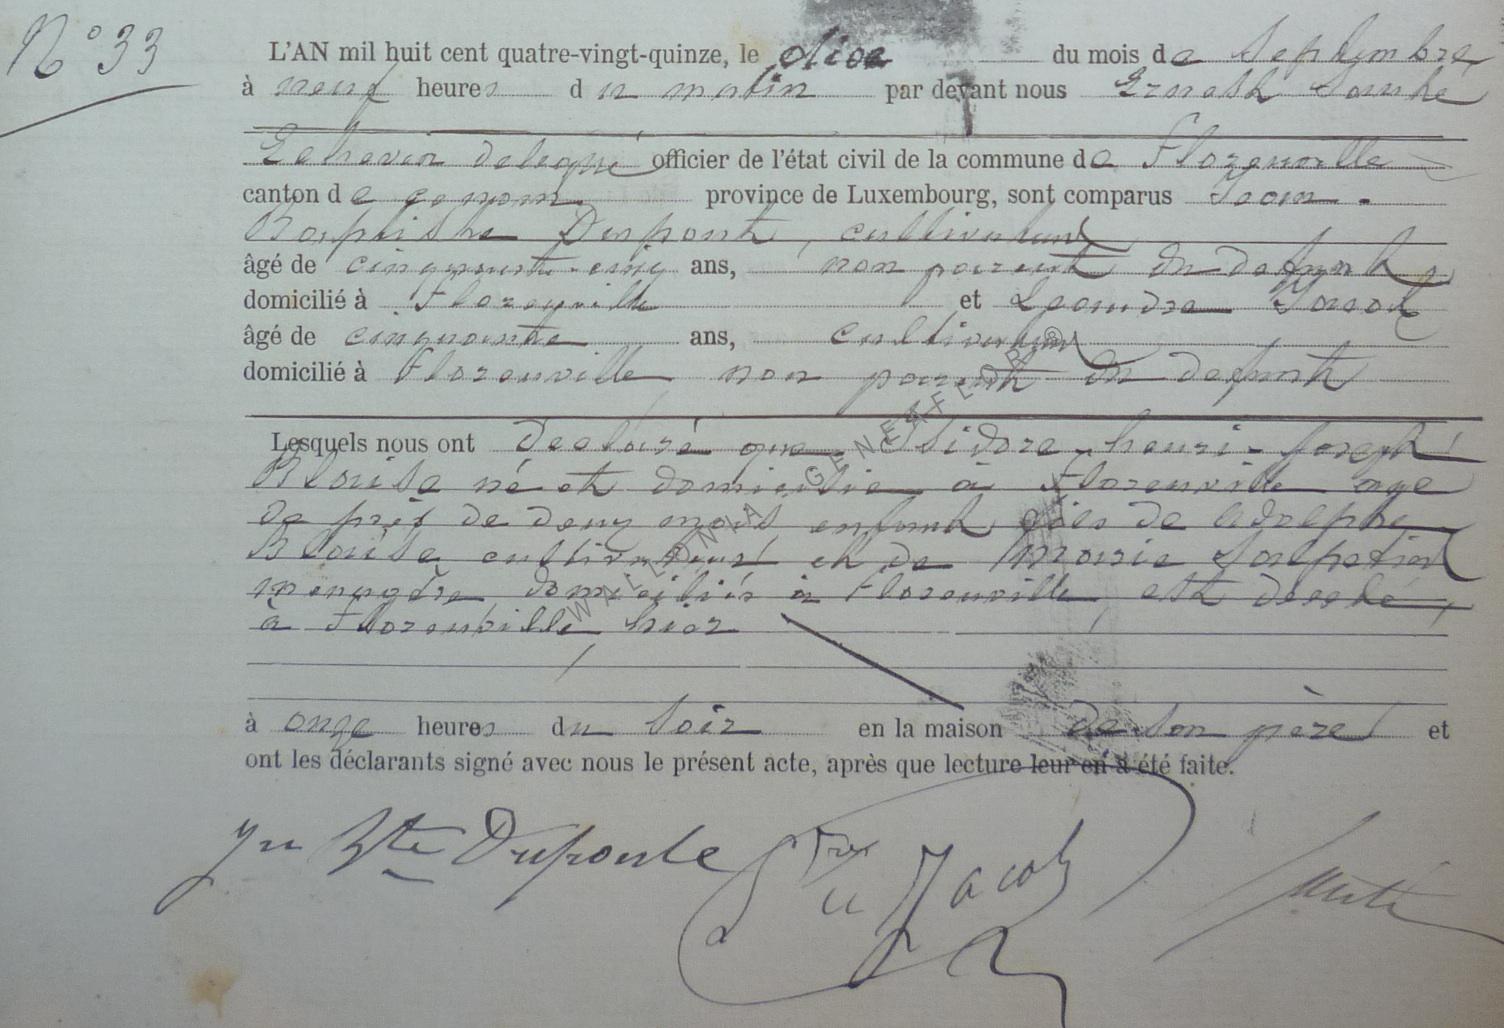 N° 33
L'AN mil huit cent quatre-vingt-quinze, le dix du mois de Septembre
à neuf heures du matin par devant nous Ernest
Echevin délégué officier de l'état civil de la commune de Florenville
canton de ce nom province de Luxembourg, sont comparus Jean-
Baptiste Dupont, cultivateur
âgé de cinquante-cinq ans, non parent du defunt,
domicilié à Florenville et Leandre Jacob
âgé de cinquante ans, cultivateur
domicilié à Florenville non parent du defunt
Lesquels nous ont declaré que Isidore-henri-Joseph
Blaise né et domicilié à Florenville agé
de près de deux mois enfant de Adolphe
Blaise cultivateur et de Marie
menagère domiciliés à Florenville est decedé,
à Florenville hier
à onze heures du soir en la maison de son père et
ont les déclarants signé avec nous le présent acte, après que lecture leur en a été faite.
Jn Bte Duponte Jacob
WALLONIA GENEAFLOR ©